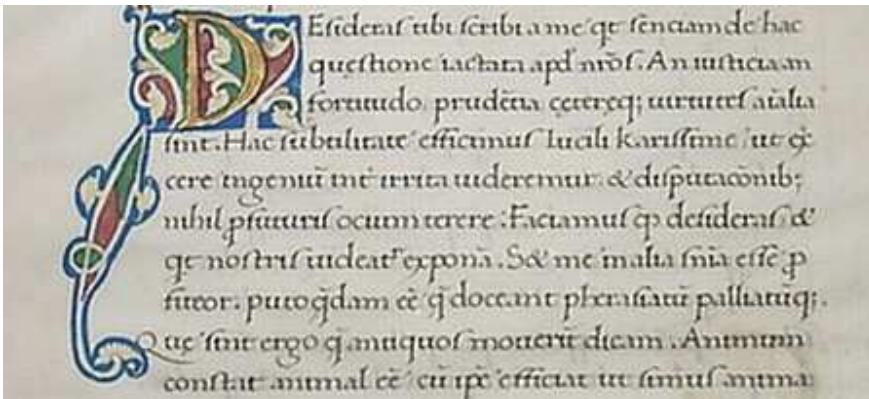 Desideras tibi scribi a me qt sẽnciam de hac
questione iactata apđ nr̃os. An iusticia an
fortitudo prudẽtia cęteręq; uirtutes aĩalia
sint. Hac subtilitate efficimus lucili karissime ut ex̃
cere ingeniũ int̃ irrita uideremur & disputacõnib;
nihil ꝓfuturis ocium terere. Faciamus qđ desideras &
qt nostris uideat᷑ exponã. S& me in alia sñia esse ꝓ
fiteor. puto q̃dam eẽ q̃ deceant pheciasiatũ palliatũq;.
Que sint ergo q̃ antiquos mouerũt dicam. Animum
constat animal eẽ cũ ip̃e efficiat ut simus anima